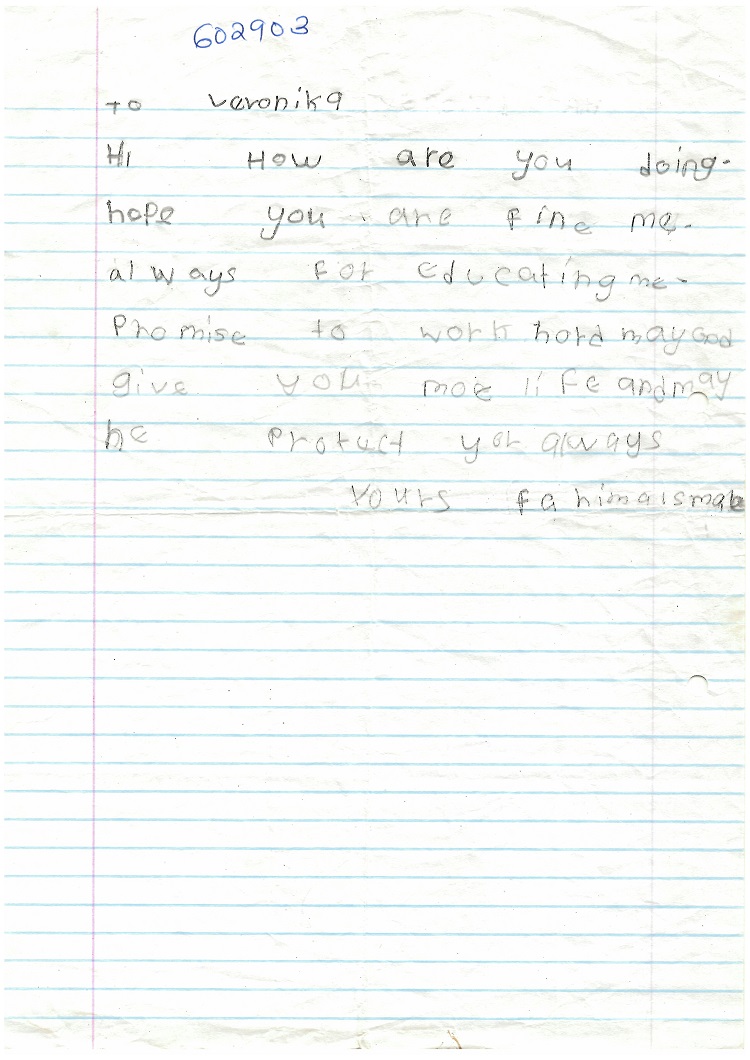 602903
to veronika
Hi How are you doing.
hope you are fine me.
always for educating me.
Promise to work hard may God
give you moe life and may
he protuct you always
yours fahimaismale